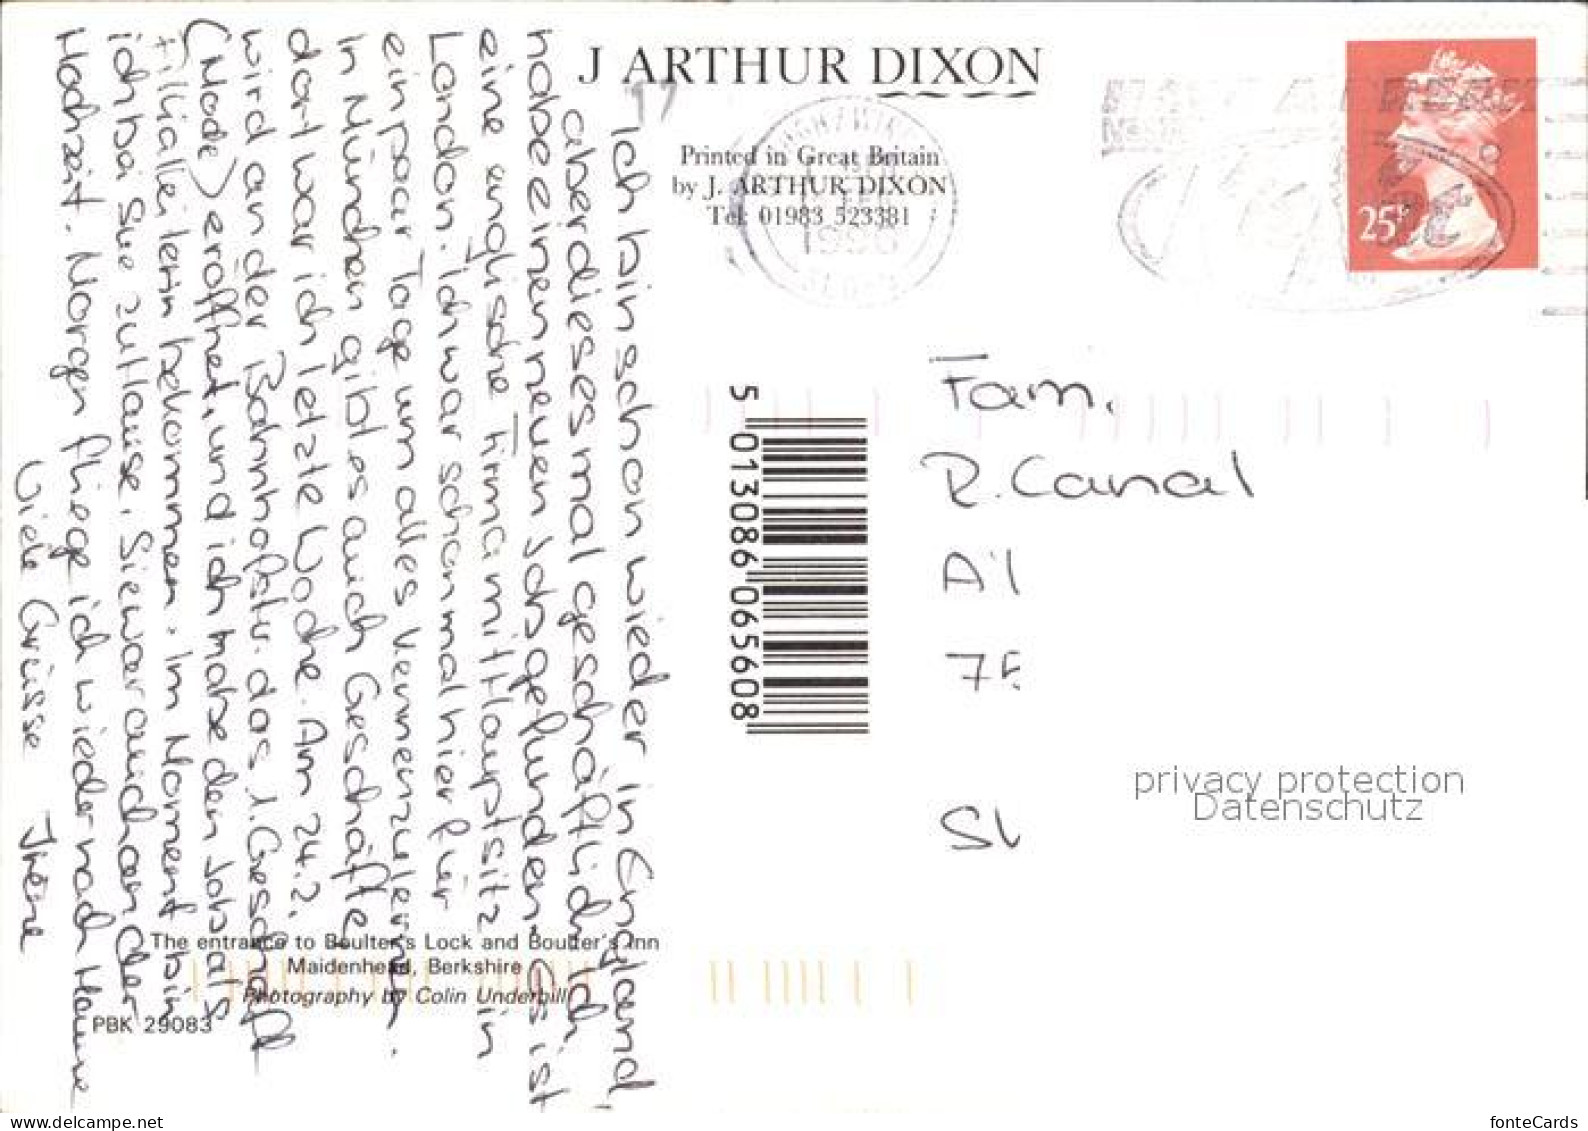 J ARTHUR DIXON
Printed in Great Britain
by J. ARTHUR DIXON
Tel: 01983 523381
25P
1996
Ich bin schon wieder in England,
aber dieses mal geschäftlich. Ich
habe einen neuen Job gefunden. Es ist
eine englische Firma mit Hauptsitz in
London. Ich war schon mal hier für
ein paar Tage um alles kennenzulernen.
In München gibt es auch Geschäfte,
dort war ich letzte Woche. Am 24.2.
wird an der Bahnhofstr. das 1. Geschäft
(Mode) eröffnet, und ich habe den Job als
Filialleiterin bekommen. Im Moment bin
ich bei Sue zu Hause. Sie war auch an der
Hochzeit. Morgen fliege ich wieder nach Hause
Viele Grüsse Irène
Fam.
R. Canal
5 013086 065608
privacy protection
Datenschutz
The entrance to Boulter's Lock and Boulter's Inn
Maidenhead, Berkshire
Photography by Colin Underhill
PBK 29083
https://www.delcampe.net
fonteCards